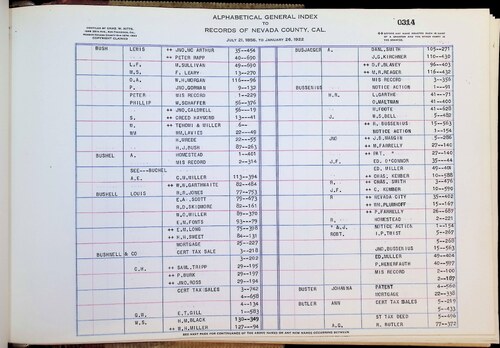 ALPHABETICAL GENERAL INDEX
TO
RECORDS OF NEVADA COUNTY, CAL.
JULY 21, 1856, TO JANUARY 26, 1922
0314
COPYRIGHT CLAIMED
BUSH LEWIS ++ JNO. MC ARTHUR 35--456
++ PETER RAPP 40--600
L.F. M. SULLIVAN 49--600
M.S. F. LEARY 13--270
O.A. W.H. MORGAN 116--96
P. JNO. GORMAN 9--132
PETER MIS RECORD 1--229
PHILLIP W. SCHAFFER 56--376
++ JNO. CALDWELL 56--19
S. ++ CREED HAYMOND 13--41
W. ++ TEWOHY & MILLER 6--
WM HU. LAVIES 22--48
H. WREDE 22--55
H.J. BUSH 87--263
BUSHEL A. HOMESTEAD 1--401
MIS RECORD 2--354
SEE---BUCHEL
A.E. C.W. MILLER 113--394
BUSHELL LOUIS ++ W.H. GARTHWAITE 82--484
++ R.R. JONES 77--753
E.A. SCOTT 79--673
R.D. SKIDMORE 82--161
W.C. MILLER 89--370
E.N. FONTS 93--79
++ E.M. LONG 75--398
++ H.H. SWEET 84--131
MORTGAGE 25--227
CERT TAX SALE 3--218
BUSHNELL & CO 3--262
C.H. ++ SAML. TRIPP 29--195
++ P. BURK 29--197
++ JNO. ROSS 29--194
CERT TAX SALES 3--742
4--658
4--134
G.R. E.T. GILL 1--583
M.S. ++ H.M. BLACK 130--349
++ B.H. MILLER 127--94
BUSJAEGER A. DANL. SMITH 105--271
J.C. KIRCHNER 110--430
++ D.F. BLANEY 96--403
++ M.R. REAGER 116--432
MIS RECORD 3--356
BUSSENIUS NOTICE ACTION 1--91
H.R. L. GARTHE 41--71
O. WALTMAN 41--400
H. FOOTE 41--628
J. W.S. BELL 5--482
++ H. BUSSENIUS 15--563
NOTICE ACTION 1--154
JNO ++ J.B. MANGIN 5--286
++ M. FARRELLY 27--140
++ INT. " 27--140
J.F. ED. O'CONNOR 35--44
ED. MILLER 49--404
++ CHAS. KEMBER 10--586
R. ++ CHAS. SMITH 34--276
J.F. ++ C. KEMBER 10--590
R ++ NEVADA CITY 39--462
++ WM. PLUMHOFF 15--187
++ P. FARRELLY 26--687
R. HOMESTEAD 1--321
" & J. NOTICE ACTION 1--154
ROBT. I.P. TRUST 5--267
5--268
JNO. BUSSENIUS 15--563
ED. MULLER 49--404
P. HEBERFAUTH 40--597
MIS RECORD 2--100
2--187
BUSTER JOHANNA PATENT 4--560
MORTGAGE 22--338
BUTLER ANN CERT TAX SALES 5--219
5--433
ST TAX DEED 5--496
A.G. R. BUTLER 77--372